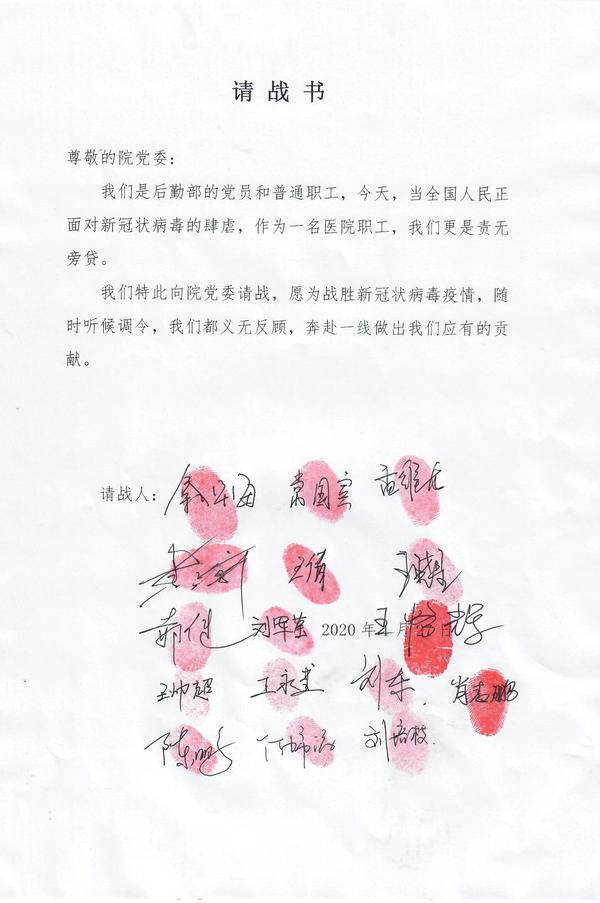 请战书
尊敬的院党委：
我们是后勤部的党员和普通职工，今天，当全国人民正
面对新冠状病毒的肆虐，作为一名医院职工，我们更是责无
旁贷。
我们特此向院党委请战，愿为战胜新冠状病毒疫情，随
时听候调令，我们都义无反顾，奔赴一线做出我们应有的贡
献。
请战人：
王倩
刘军荣 2020年 月 日
王帅超 王永生 刘东 肖志鹏
刘培枝